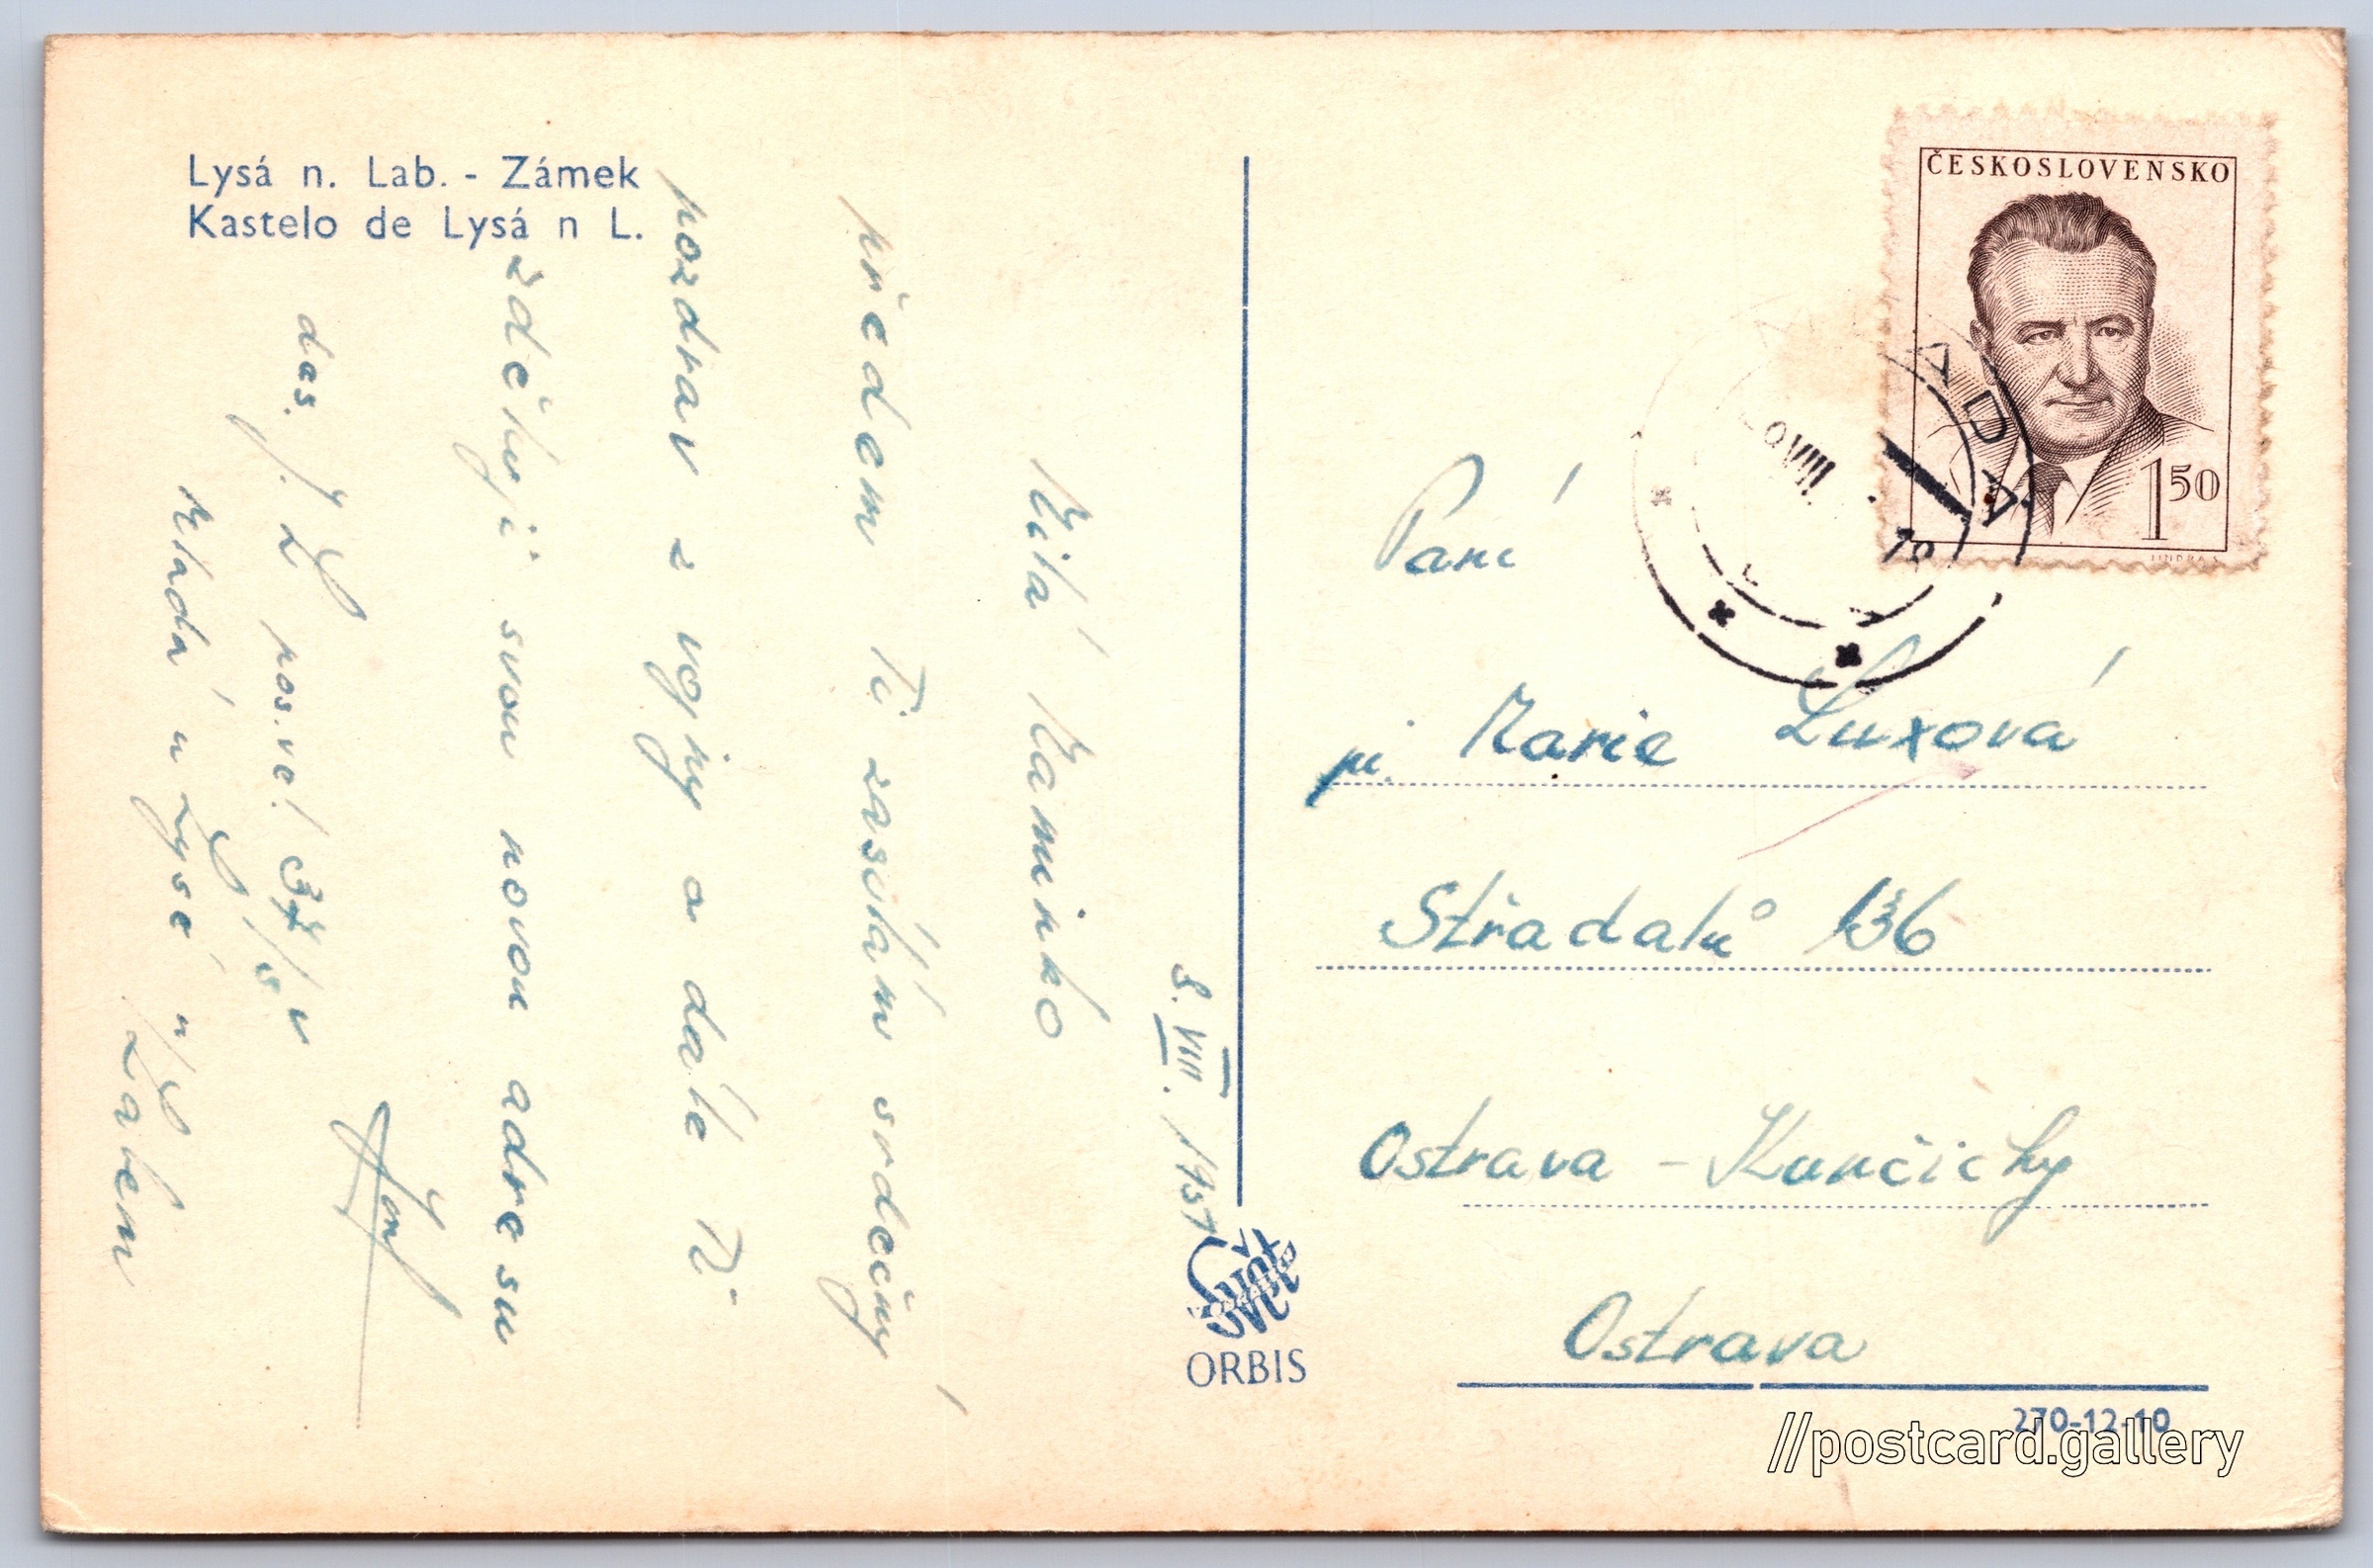 Lysá n. Lab. - Zámek
Kastelo de Lysá n L.
8. VIII. 1951
Milá Maminko
předem Ti zasílám srdečný
pozdrav z vojny a dále Ti
zděluji svou novou adresu
des. J. L pos. vel. 37/s v
Mladá u Lysé n/Labem
ČESKOSLOVENSKO
1 50
MLADÁ
VIII
Paní
pí. Marie Luxová
Středalů 136
Ostrava - Kunčičky
Ostrava
Svět
ORBIS
270-12-10
//postcard.gallery